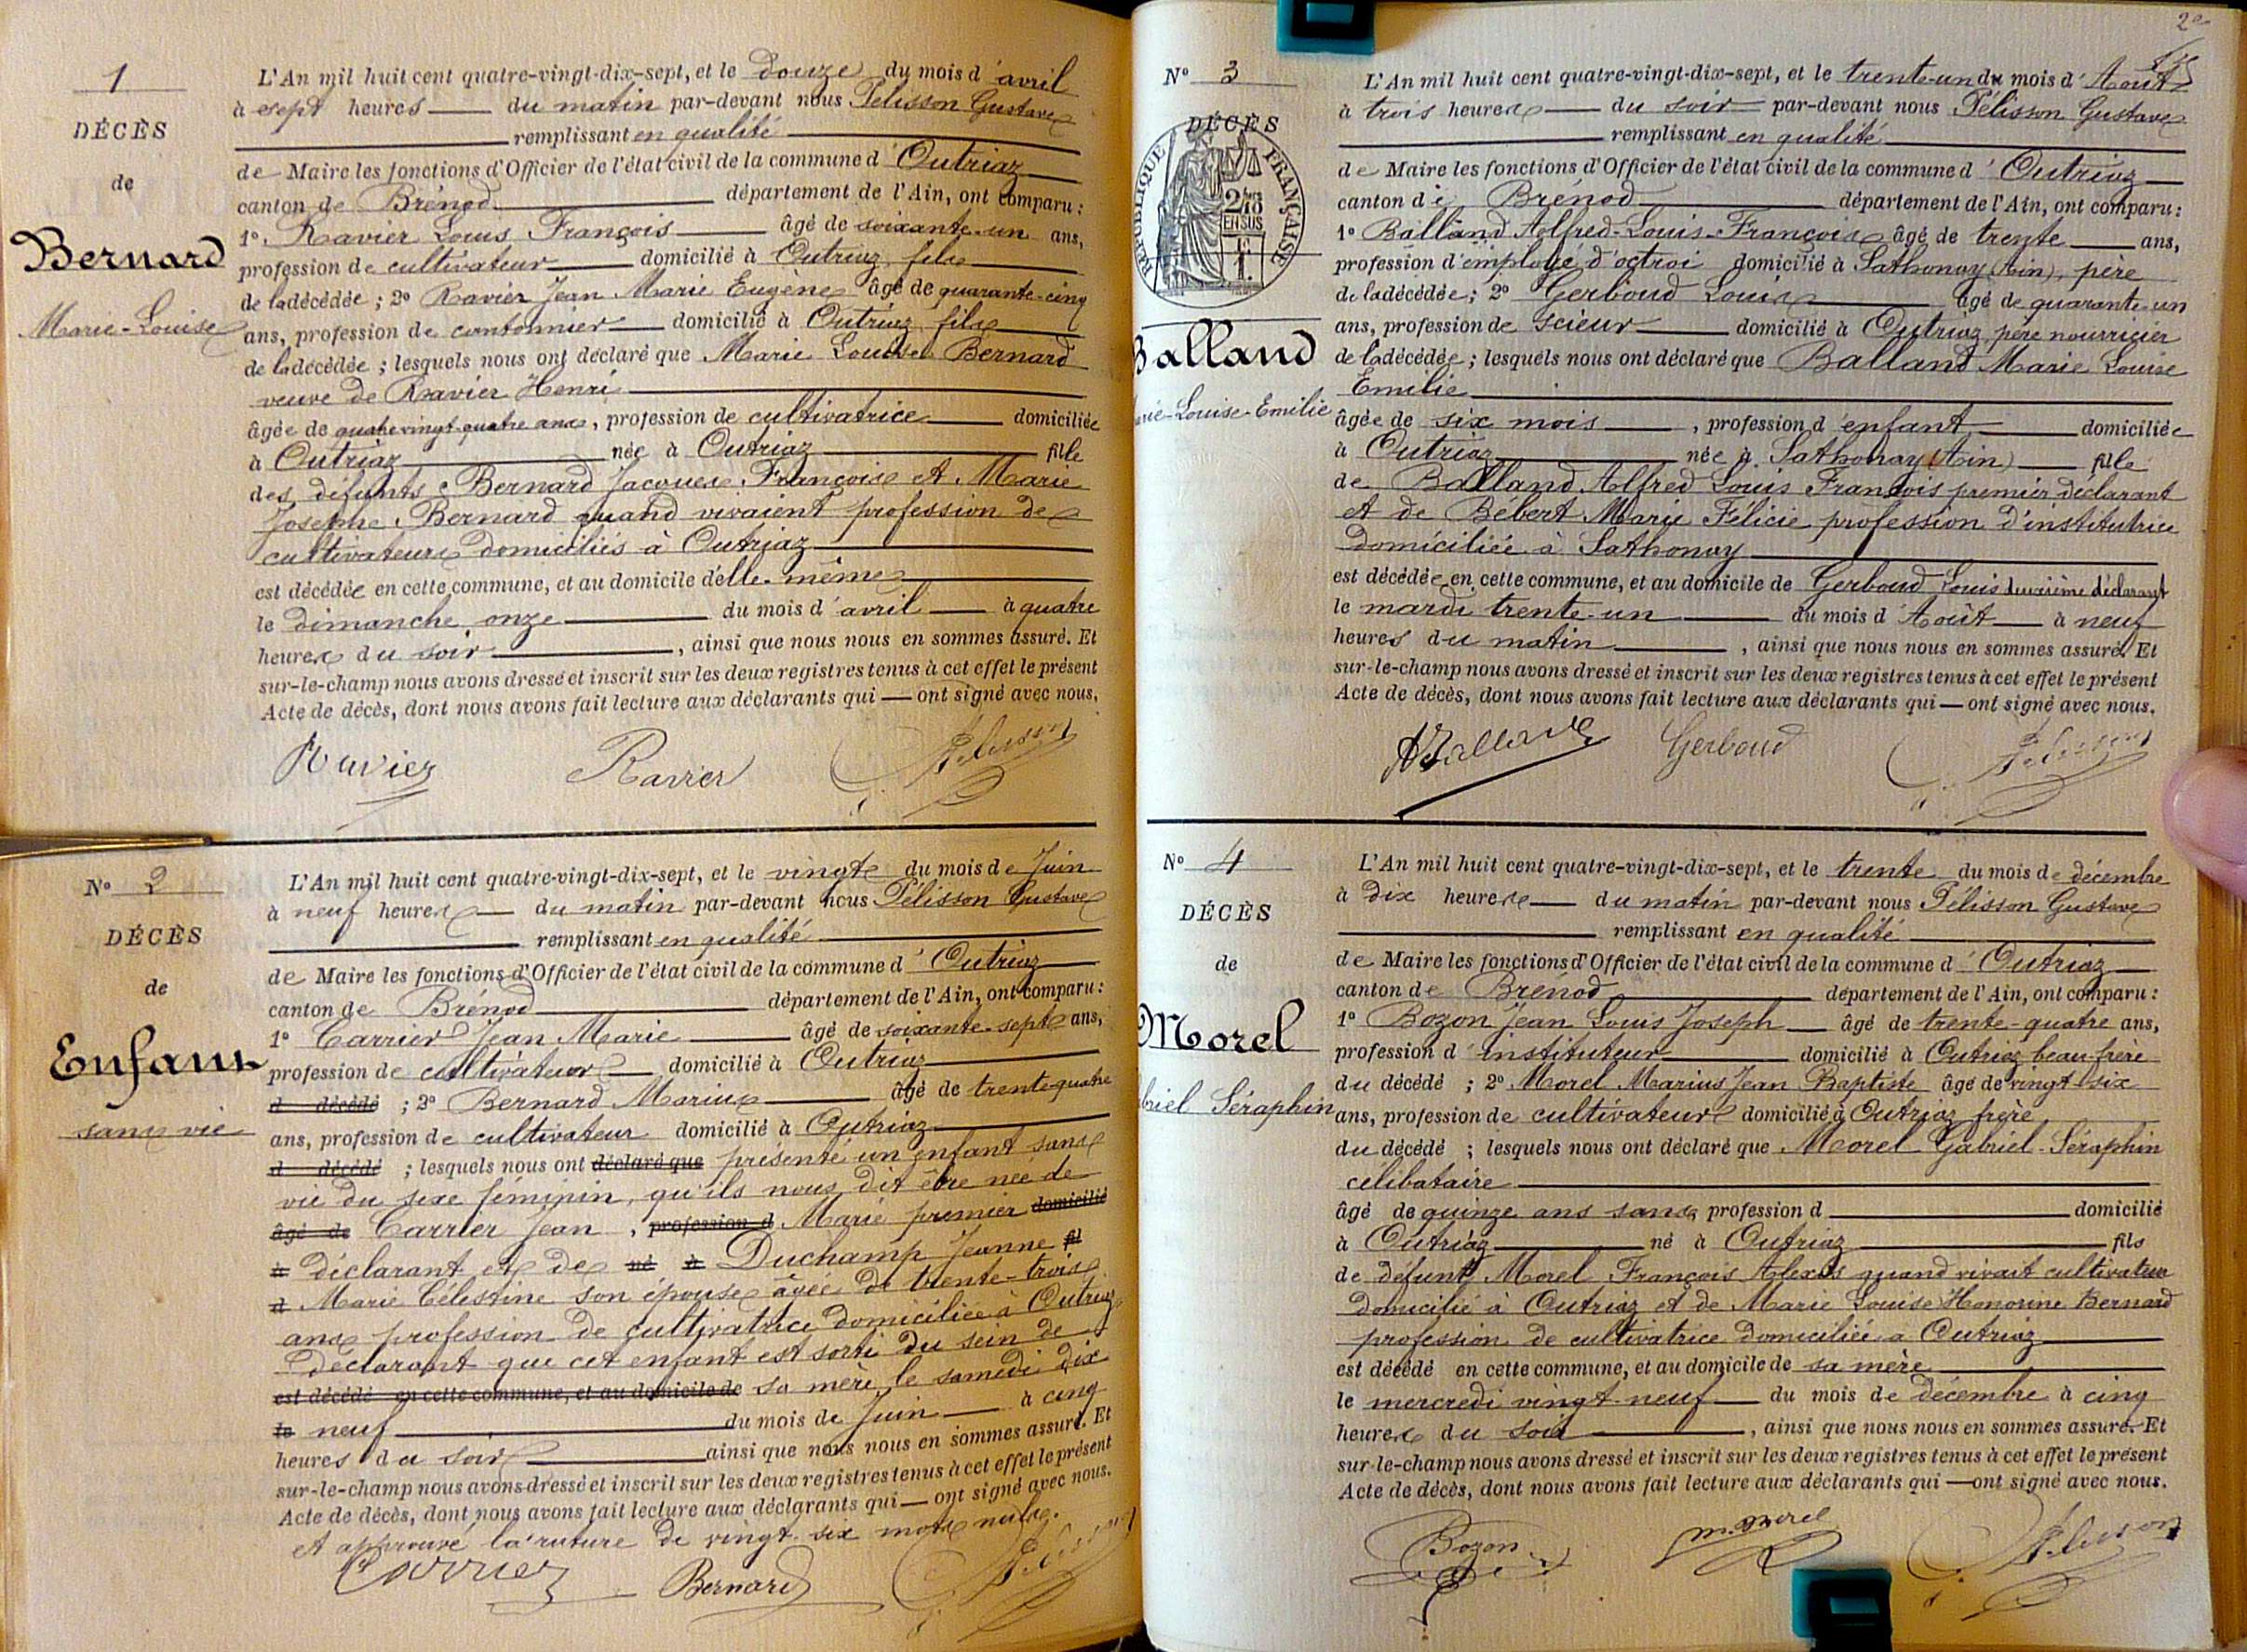 1
DÉCÈS
de
Bernard
Marie-Louise
L'An mil huit cent quatre-vingt-dix-sept, et le douze du mois d'avril
à sept heures du matin par-devant nous Pélisson Gustave
remplissant en qualité
de Maire les fonctions d'Officier de l'état civil de la commune d'Outriaz
canton de Brénod département de l'Ain, ont comparu :
1° Ravier Louis François âgé de soixante-un ans,
profession de cultivateur domicilié à Outriaz, fils
de la décédée ; 2° Ravier Jean Marie Eugène âgé de quarante-cinq
ans, profession de cantonnier domicilié à Outriaz, fils
de la décédée ; lesquels nous ont déclaré que Marie Louise Bernard
veuve de Ravier Henri
âgée de quatre vingt-quatre ans, profession de cultivatrice domiciliée
à Outriaz née à Outriaz fille
des défunts Bernard Jacques François et Marie
Josephe Bernard quand vivaient profession de
cultivateurs domiciliés à Outriaz
est décédée en cette commune, et au domicile d'elle-même
le dimanche onze du mois d'avril à quatre
heures du soir, ainsi que nous nous en sommes assuré. Et
sur-le-champ nous avons dressé et inscrit sur les deux registres tenus à cet effet le présent
Acte de décès, dont nous avons fait lecture aux déclarants qui — ont signé avec nous.
Ravier Ravier Pélisson
N° 2
DÉCÈS
de
Enfant
sans vie
L'An mil huit cent quatre-vingt-dix-sept, et le vingt du mois de Juin
à neuf heures du matin par-devant nous Pélisson Gustave
remplissant en qualité
de Maire les fonctions d'Officier de l'état civil de la commune d'Outriaz
canton de Brénod département de l'Ain, ont comparu :
1° Carrier Jean Marie âgé de soixante-sept ans,
profession de cultivateur domicilié à Outriaz
d décédé ; 2° Bernard Marius âgé de trente-quatre
ans, profession de cultivateur domicilié à Outriaz
d décédé ; lesquels nous ont déclaré que présenté un enfant sans
vie du sexe féminin, qu'ils nous dit être née de
âgé de Carrier Jean, profession d Marie premier domicilié
à déclarant et de né à Duchamp Jeanne fil
d Marie Célestine son épouse âgée de trente-trois
ans profession de cultivatrice domiciliée à Outriaz
Déclarant que cet enfant est sorti du sein de
est décédé en cette commune, et au domicile de sa mère le samedi dix
le neuf du mois de Juin à cinq
heures du soir ainsi que nous nous en sommes assuré. Et
sur-le-champ nous avons dressé et inscrit sur les deux registres tenus à cet effet le présent
Acte de décès, dont nous avons fait lecture aux déclarants qui — ont signé avec nous.
Et approuvé la rature de vingt-six mots nuls.
Carrier Bernard Pélisson
2
N° 3
DÉCÈS
RÉPUBLIQUE FRANÇAISE
2/10 EN SUS
Balland
Marie-Louise-Emilie
L'An mil huit cent quatre-vingt-dix-sept, et le trente-un du mois d'Août
à trois heures du soir par-devant nous Pélisson Gustave
remplissant en qualité
de Maire les fonctions d'Officier de l'état civil de la commune d'Outriaz
canton de Brénod département de l'Ain, ont comparu :
1° Balland Alfred-Louis-François âgé de trente ans,
profession d'employé d'octroi domicilié à Sathonay (Ain), père
de la décédée ; 2° Gerboud Louis âgé de quarante-un
ans, profession de scieur domicilié à Outriaz, père nourricier
de la décédée ; lesquels nous ont déclaré que Balland Marie Louise
Emilie
âgée de six mois, profession d'enfant domiciliée
à Outriaz née à Sathonay (Ain) fille
de Balland Alfred Louis François premier déclarant
et de Bébert Marie Félicie profession d'institutrice
domiciliée à Sathonay
est décédée en cette commune, et au domicile de Gerboud Louis deuxième déclarant
le mardi trente-un du mois d'Août à neuf
heures du matin, ainsi que nous nous en sommes assuré. Et
sur-le-champ nous avons dressé et inscrit sur les deux registres tenus à cet effet le présent
Acte de décès, dont nous avons fait lecture aux déclarants qui — ont signé avec nous.
ABalland Gerboud Pélisson
N° 4
DÉCÈS
de
Morel
briel Séraphin
L'An mil huit cent quatre-vingt-dix-sept, et le trente du mois de décembre
à dix heures du matin par-devant nous Pélisson Gustave
remplissant en qualité
de Maire les fonctions d'Officier de l'état civil de la commune d'Outriaz
canton de Brénod département de l'Ain, ont comparu :
1° Bozon Jean Louis Joseph âgé de trente-quatre ans,
profession d'instituteur domicilié à Outriaz beau-frère
du décédé ; 2° Morel Marius Jean Baptiste âgé de vingt-six
ans, profession de cultivateur domicilié à Outriaz frère
du décédé ; lesquels nous ont déclaré que Morel Gabriel-Séraphin
célibataire
âgé de quinze ans sans profession d domicilié
à Outriaz né à Outriaz fils
de défunt Morel François Alexis quand vivait cultivateur
domicilié à Outriaz et de Marie Louise Honorine Bernard
profession de cultivatrice domiciliée à Outriaz
est décédé en cette commune, et au domicile de sa mère
le mercredi vingt-neuf du mois de décembre à cinq
heures du soir, ainsi que nous nous en sommes assuré. Et
sur-le-champ nous avons dressé et inscrit sur les deux registres tenus à cet effet le présent
Acte de décès, dont nous avons fait lecture aux déclarants qui — ont signé avec nous.
Bozon m. morel Pélisson